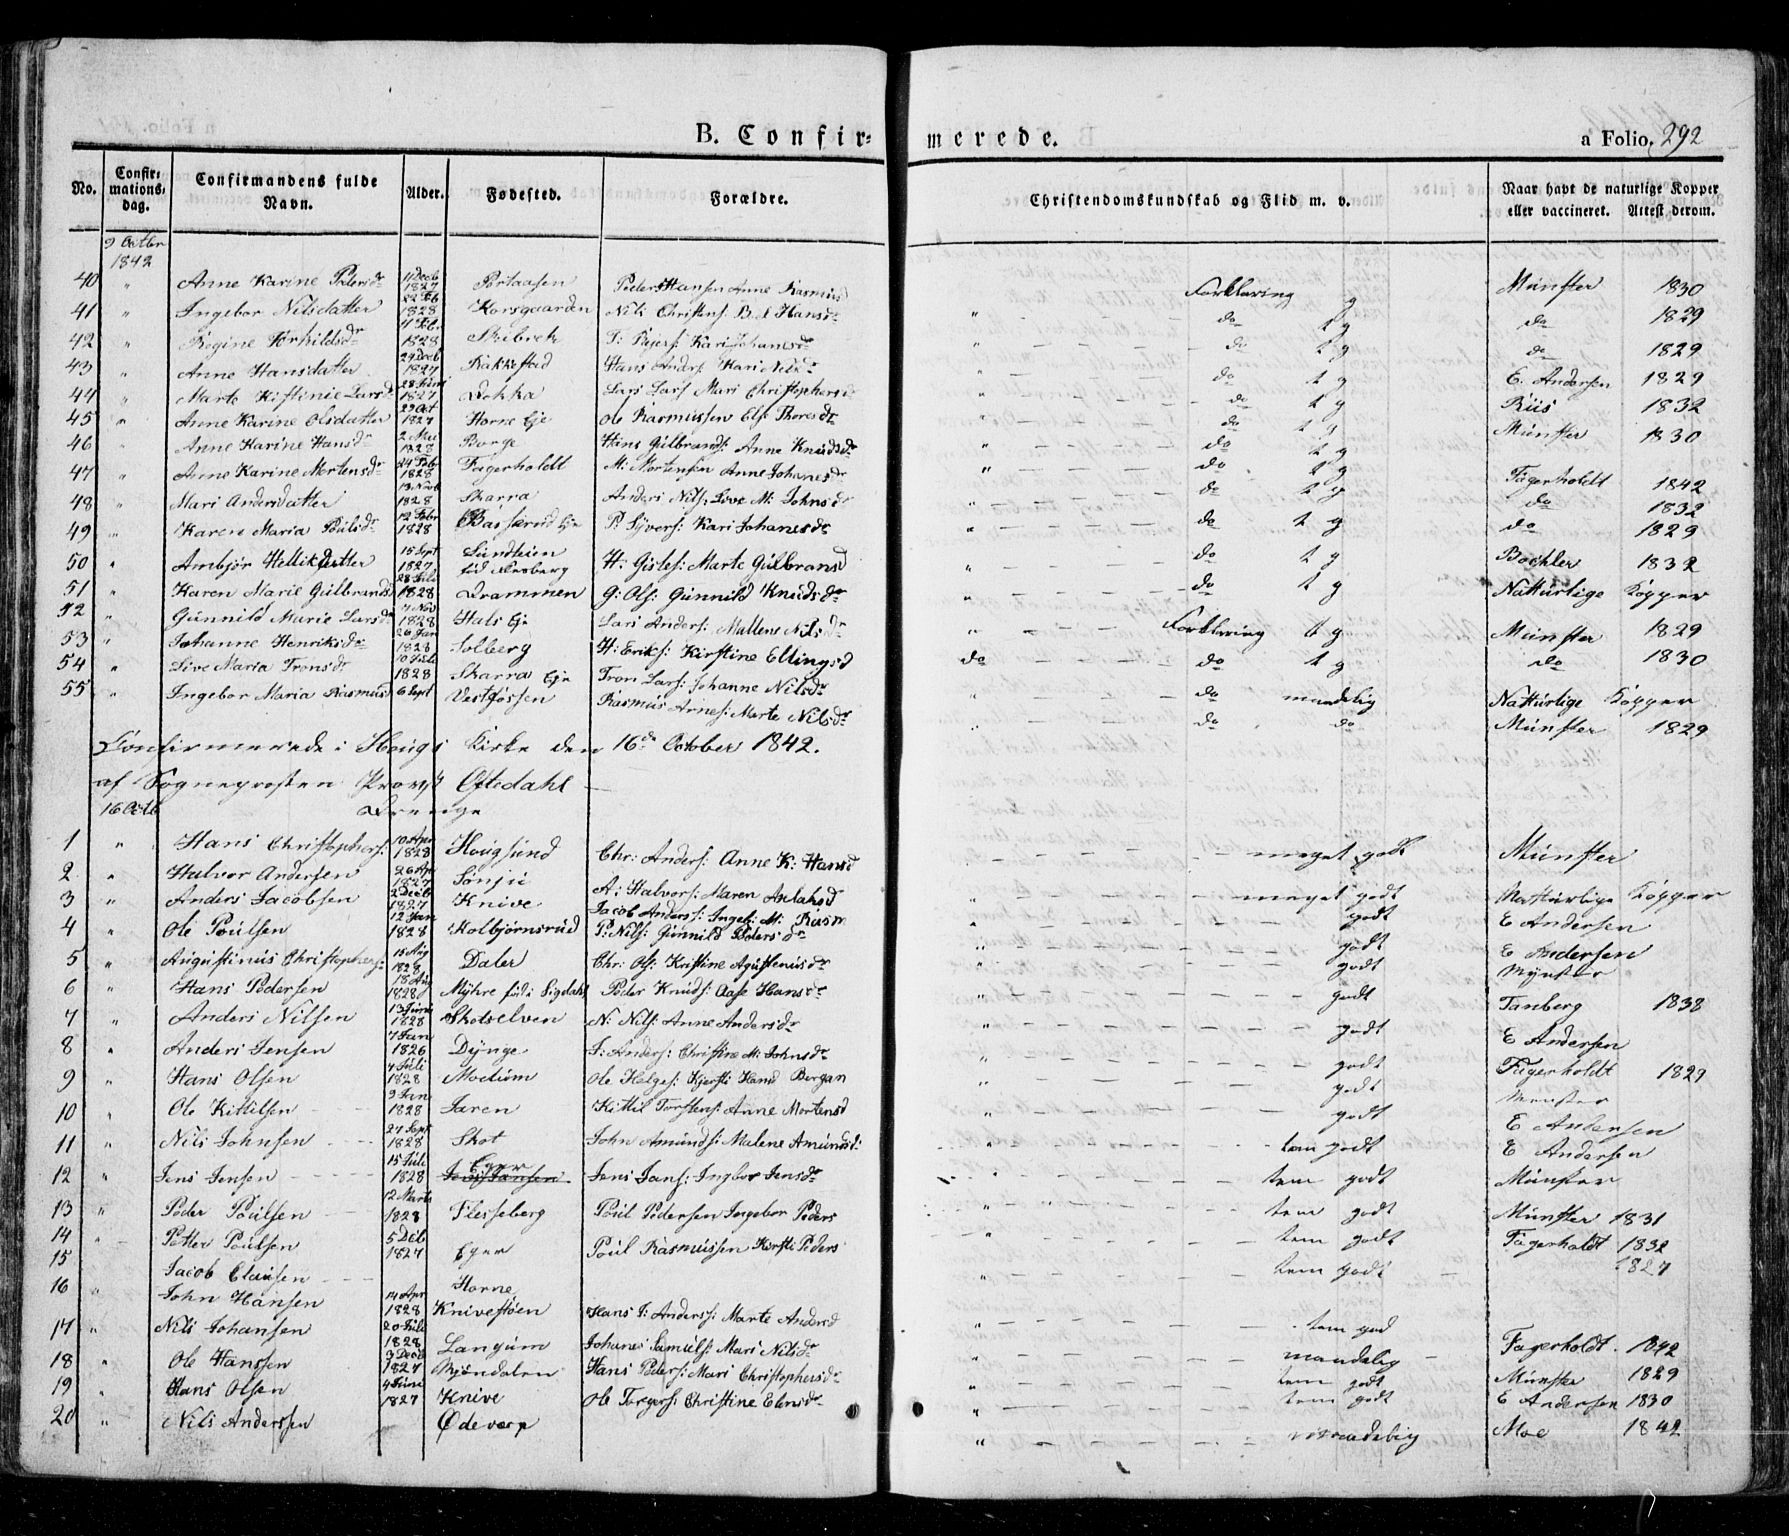 B. Confirmerede.
a Folio. 292
No.
Confirmationsdag.
Confirmandens fulde Navn.
Alder.
Fødested.
Forældre.
Christendomskundskab og Flid m. v.
Naar havt de naturlige Kopper eller vaccineret. Attest derom.
9 Octbr 1842
40 " Anne Karine Pedersdr 11 Decb 1827 Peder Hansen Anne Rasmusd Forklaring g Münster 1830
41 " Ingebor Nilsdatter 22 Feb 1828 Korsgaarden Nils Christens: Hansdr " do t g do 1829
42 " Regine Torkildsdr 1828 Skibrek T: Kari Johansdr " do t g do 1829
43 " Anne Hansdatter 29 Decb 1827 Rakkestad Hans Anders Kari Nilsdr " do t g E. Andersen 1829
44 " Marte Kistinie Larsd 28 Juni 1827 Dokka Lars Lars Mari Christophersd do t g Riis 1832
45 " Anne Karine Olsdatter 29 Oct 1827 Horne Eje Ole Rasmussen Else Thoresdr do t g Münster 1830
46 " Anne Karine Hansdr 1828 Borge Hans Gulbrands: Anne Knudsdr " do t g
47 " Anne Karine Mortensdr 24 Febr 1828 Fagerholdt M: Mortensen Anne Johanesdr " do t g Fagerholdt 1842
48 " Mari Andersdatter 1828 Skarra Anders Nils: Live M: Johnsdr do t g do 1832
49 " Karen Maria Poulsdr 12 Febr 1828 Eje P: Syvers: Kari Johanesdr " do t g do 1829
50 " Ambjør Hellikdatter 15 Sept 1827 fød Flesberg H: Gisles: Marte Gulbransd do t g Bochler 1832
51 " Karen Marie Gulbrands 28 Juli 1828 Drammen G: Ols: Gunnild Knudsdr " do t g Natturlige Kopper
52 " Gunnild Marie Larsdr 7 Nov 1828 Hals Eje Lars Anders: Mallene Nilsdr " Forklaring t g Münster 1829
53 " Johanne Henriksdr 26 Jan 1828 Solberg H: Eriks: Kirstine Ellingsd do do t g do 1830
54 " Live Maria Tronsdr 10 Juli 1828 Skarra Eje Tron Lars: Johanne Nilsdr " do maadelig Natturlige Kopper
55 " Ingebor Maria Rasmusd 6 Sept Vestfossen Rasmus Arnes: Marte Nilsdr " do do Münster 1829
Confirmerede i Hougs Kirke den 16de October 1842.
af Sogneprosten Provst Oftedahl
16 Octb
Drenge
1 " Hans Christophers: 10 Apr 1828 Hougsund Chr: Anders: Anne K: Hansd meget godt Münster
2 " Halvor Andersen 26 Apr 1827 Sønju A: Halvors: Maren Aslaksd meget godt Natturlige Kopper
3 " Anders Jacobsen 2 Decb 1827 Knive Jacob Anders: Ingeb: M: Rasm godt E Andersen
4 " Ole Poulsen 12 Jan 1828 Kolbjørnsrud P: Nils: Gunnild Pedersdr godt E Andersen
5 " Augustinus Christophers: 15 Aug 1828 Daler Chr: Ols: Kristine Agustenusdr " godt Mynster
6 " Hans Pedersen 18 Aug 1828 Myhre fød i Sigdahl Peder Knuds: Aase Hansdr " godt Tanberg 1838
7 " Anders Nilsen 13 Juni 1828 Skotselven N: Nils: Anne Andersdr " godt E Andersen
8 " Anders Jensen 7 Jan 1826 Dynge J: Anders: Christine M: Johnsdr " godt Fagerholdt 1829
9 " Hans Olsen 4 Juli 1828 Modum Ole Helges: Kjersti Hansd Bergan godt Münster
10 " Ole Kittilsen 9 Jan 1828 Jaren Kittil Torstens: Anne Mortensd " godt E Andersen
11 " Nils Johnsen 27 Sept 1828 Skot John Amunds: Malene Amundsd: " tem godt E Andersen
12 " Jens Jensen 15 Juli 1828 Eger Jens Jans: Ingbor Jensdr tem godt Münster
13 " Peder Poulsen 12 Marts 1828 Flesseberg Poul Pedersen Ingebor Peders tem godt Münster 1831
14 " Petter Poulsen 5 Decb 1827 Eger Poul Rasmussen Kersti Peders tem godt Fagerholdt 1832
15 Jacob Clausen Horne " tem godt 1827
16 " John Hansen 14 Apr 1828 Knivestøen Hans J: Anders: Marte Andersd " tem god
17 " Nils Johansen 20 Juli 1828 Langum Johanes Samuels: Mari Nilsdr " maadelig Fagerholdt 1842
18 " Ole Hanssen 3 Decb 1827 Mjøndalen Hans Peders: Mari Christophersdr " tem godt Münster 1829
19 " Hans Olsen 4 Juni 1827 Knive Ole Torgers: Christine Elensdr " tem godt E Andersen 1830
20 " Nils Anderssen Ødeværp " maadelig Moe 1842